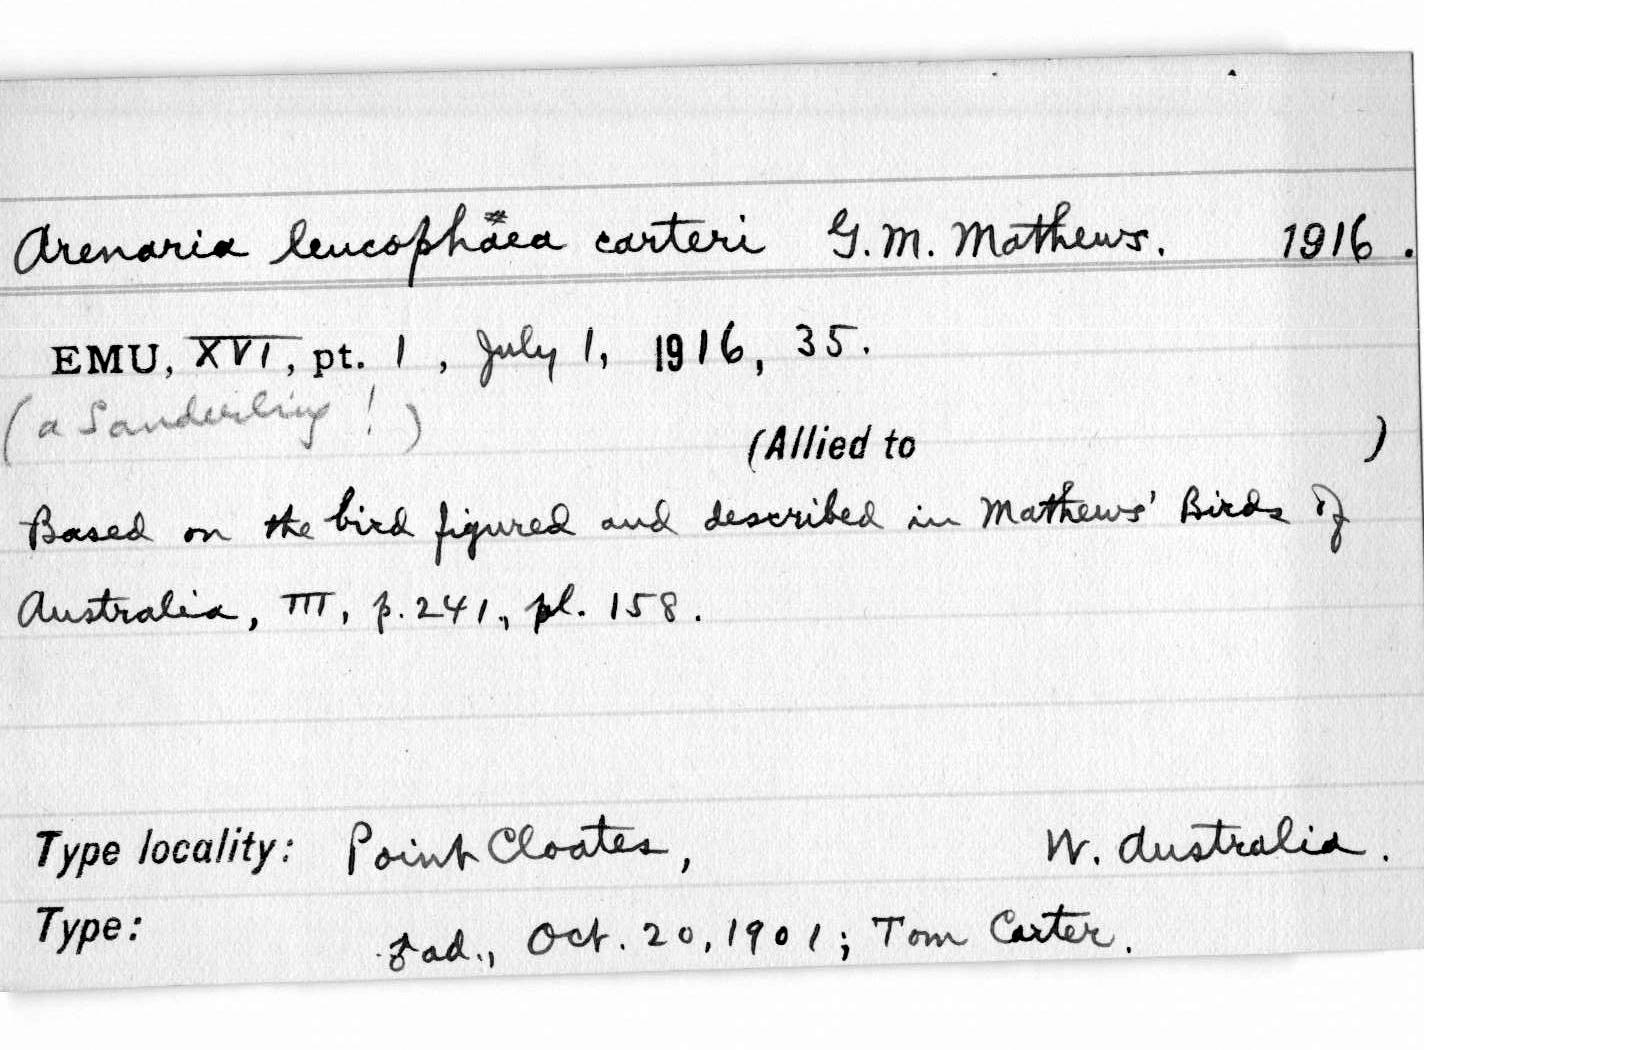 Arenaria leucophäea carteri G. M. Mathews. 1916.
EMU, XVI, pt. 1, July 1, 1916, 35.
(a Sanderling!)
(Allied to )
Based on the bird figured and described in Mathews' Birds of
Australia, III, p. 241, pl. 158.
Type locality: Point Cloates, W. Australia.
Type: ad., Oct. 20, 1901; Tom Carter.